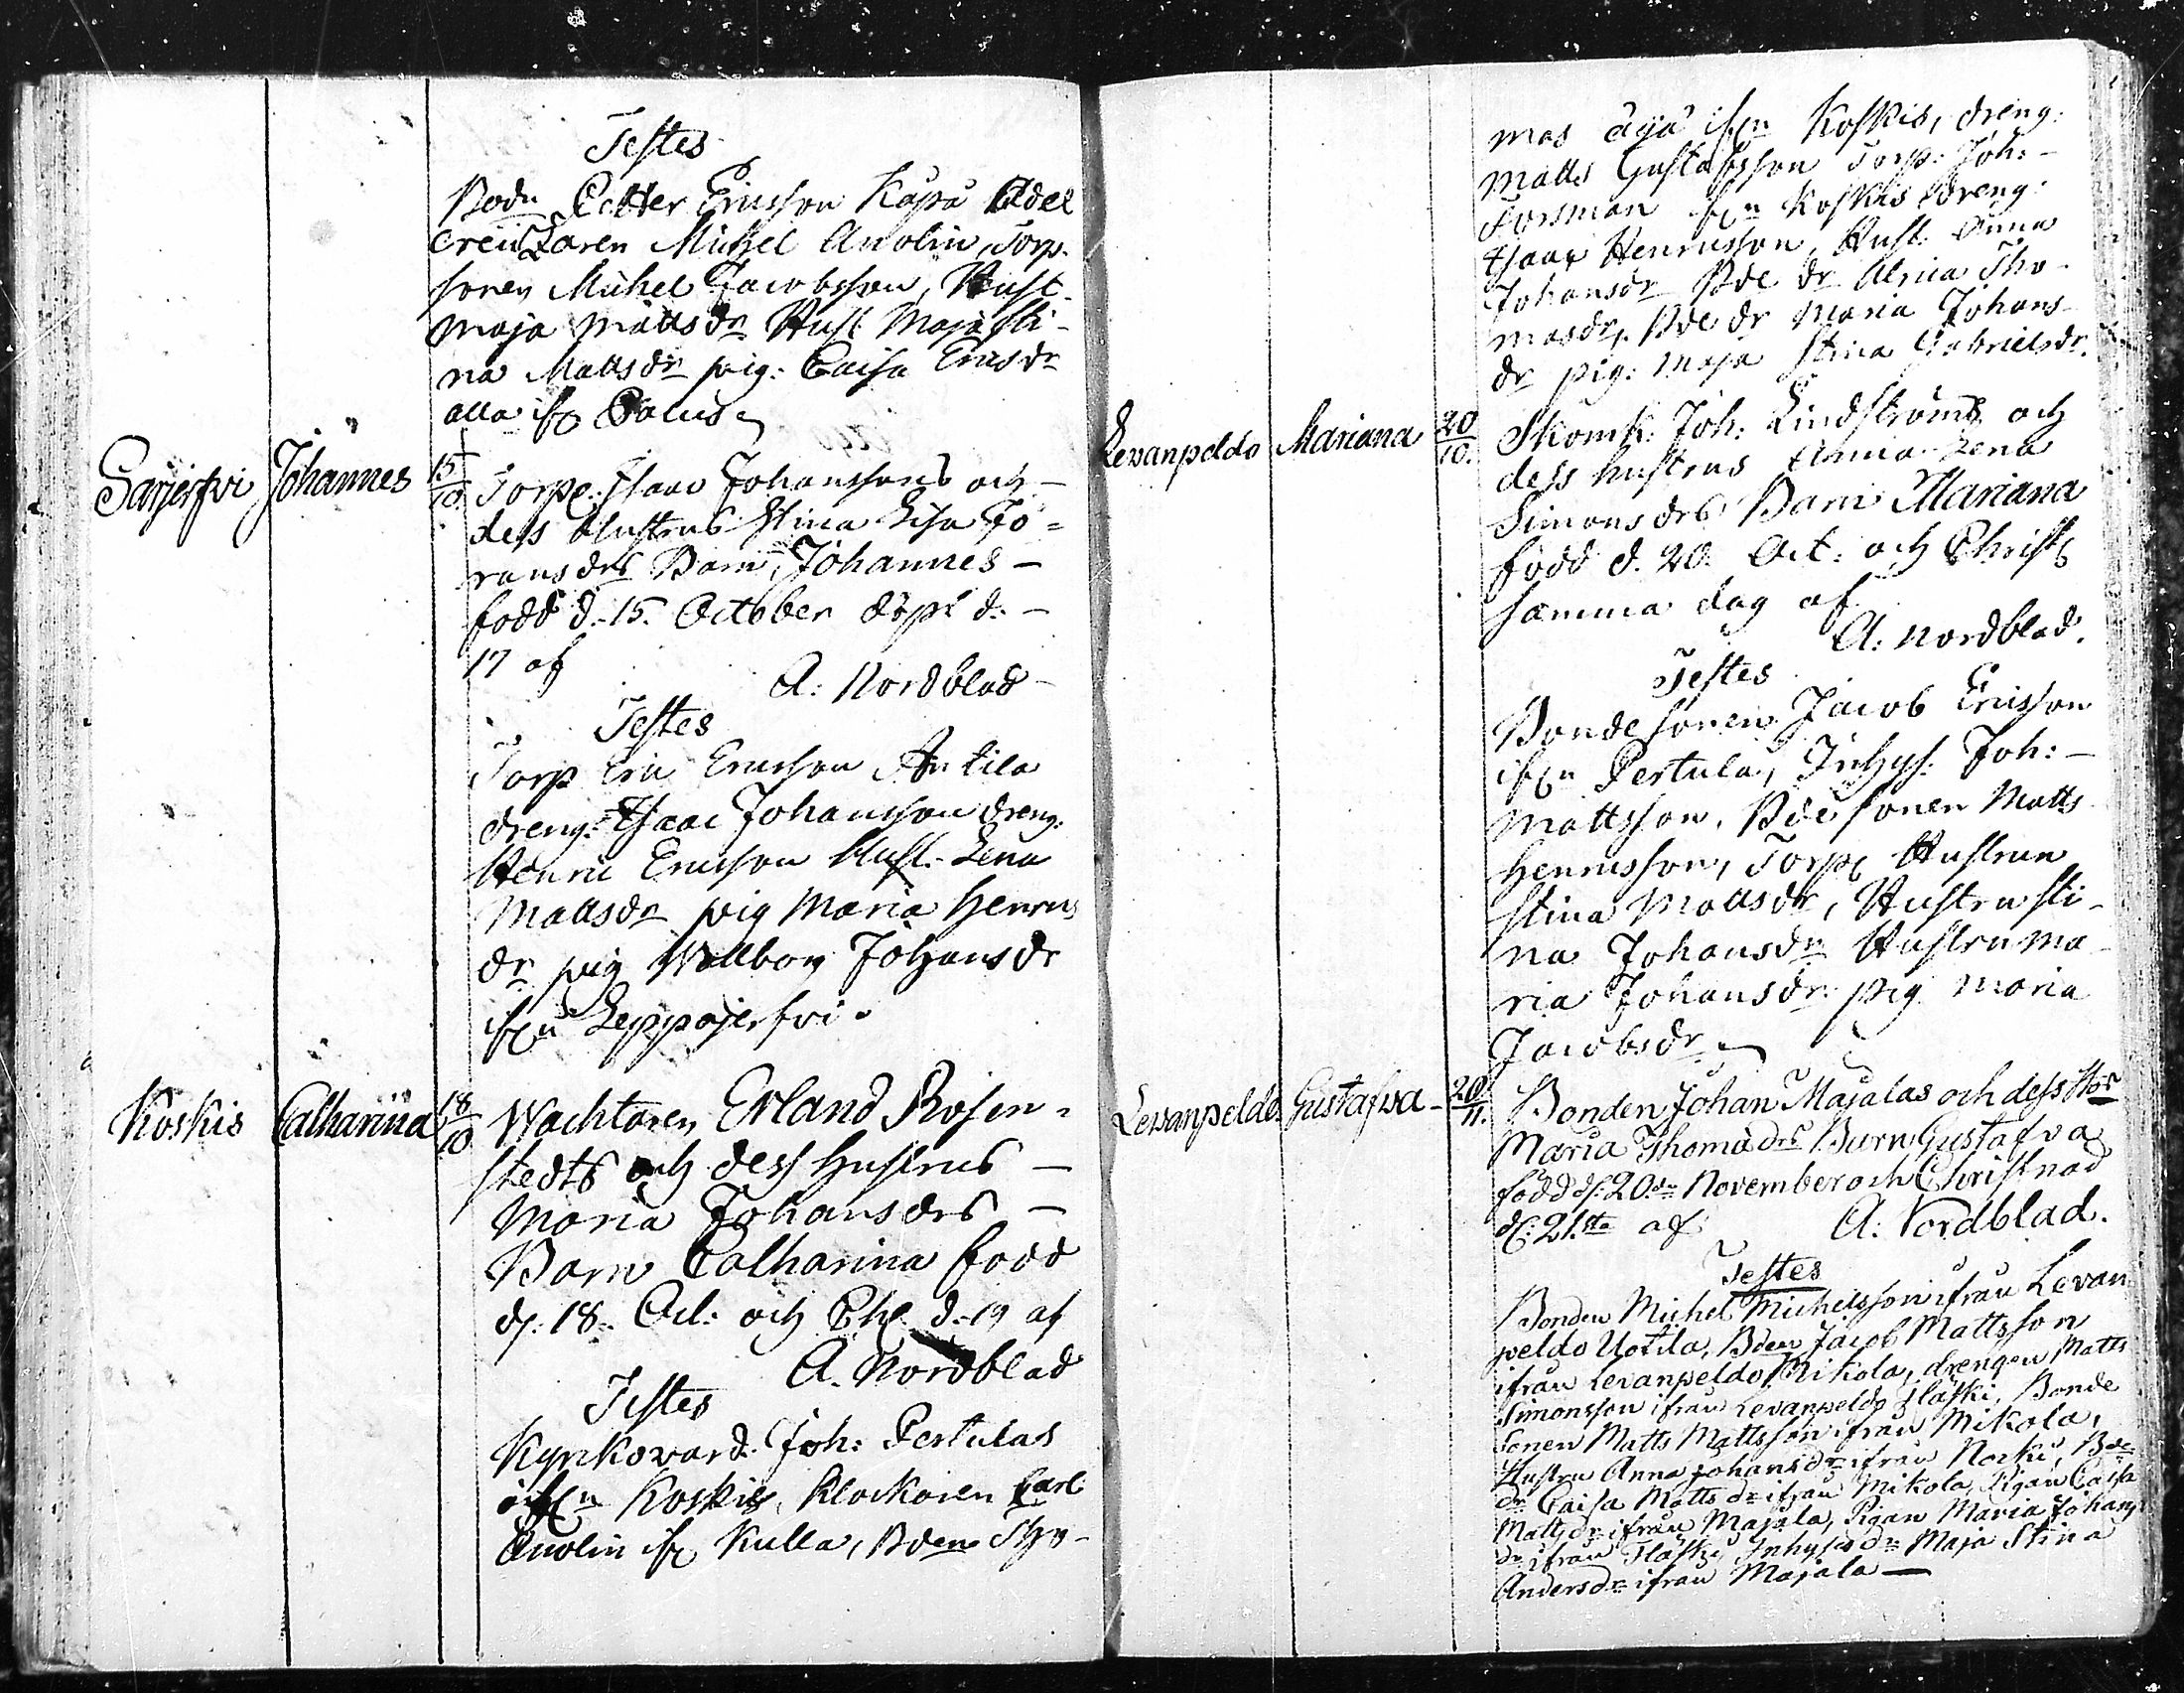 Testes
Bodn Petter Ericsson Kapa Adel
creutzaren Michel Anolin, Torp.
sonen Michel Jacobsson, Hust.
Maja Mattsdr Hust Maja Sti-
na Mattsdr pig: Caisa Ericsdr
alla ifr Palus
Sarjerfvi Johannes 15/10 Torp: Isaac Johanssons och -
dess Hustrus Stina Lisa Jö=
ransdrs Barn, Johannes -
född d. 15. October döpt d. -
17 af
A: Nordblad
Testes
Torp Eric Ericsson Antila
dreng: Isaac Johansson dreng:
Henric Ericsson Hust. Lena
Mattsdr pig Maria Henrics
dr pig Wallborg Johansdr
ifrn Leppäjerfvi.
Koskis Catharina 18/10 Wachtaren Erland Rosen=
stedts och dess Hustrus -
Maria Johansdrs -
Barn Catharina född
d. 18. Oct: och Chr. d. 19 af
A. Nordblad
Testes
Kyrkovärd. Joh: Pertulas
ifrn Koskis, Klockaren Carl
Anolin ifr Kulla, Bden Tho-
mas äijä ifrn Koskis, dreng:
Matts Gustafsson Torp: Joh: -
Forsman ifrn Koskis dreng:
Isaac Henricsson, Hust: Anna
Johansdr Bde dr Ulrica Tho-
masdr, Bde dr Maria Johans-
dr pig: Maja Stina Gabrielsdr.
Levanpeldo Mariana 20/10. Skomk: Joh: Lindströms och
dess hustrus Anna Lena
Simonsdrs Barn Mariana
född d. 20. Oct: och Christ
samma dag af
A: Nordblad.
Testes
Bondesonen Jacob Ericsson
ifrn Pertula, Inhys: Joh: -
Mattsson, Bde sonen Matts
Henricsson, Torp Hustrun
Stina Mattsdr, Hustru Sti-
na Johansdr Hustru Ma-
ria Johansdr: pig Maria
Jacobsdr
Levanpeldo Gustafwa - 20/11. Bonden Johan Majalas och dess Hus
Maria Thomædrs Barn Gustafva
född d: 20de November och Christnad
d: 21sta af A: Nordblad.
Testes
Bonden Michel Michelsson ifrån Levan
peldo Uotila, Bden Jacob Mattsson
ifrån Levanpeldo Mikola, drengen Matts
Simonsson ifrån Levanpeldo Flaski, Bonde
Sonen Matts Mattsson ifrån Mikola,
Hustru Anna Johansdr ifrån Norki, Bde
dr Caisa Mattsdr ifrån Mikola, Pigan Caisa
Mattsdr ifrån Majala, Pigan Maria Johans
dr ifrån Flaski, Inhyses dr Maja Stina
Andersdr ifrån Majala —